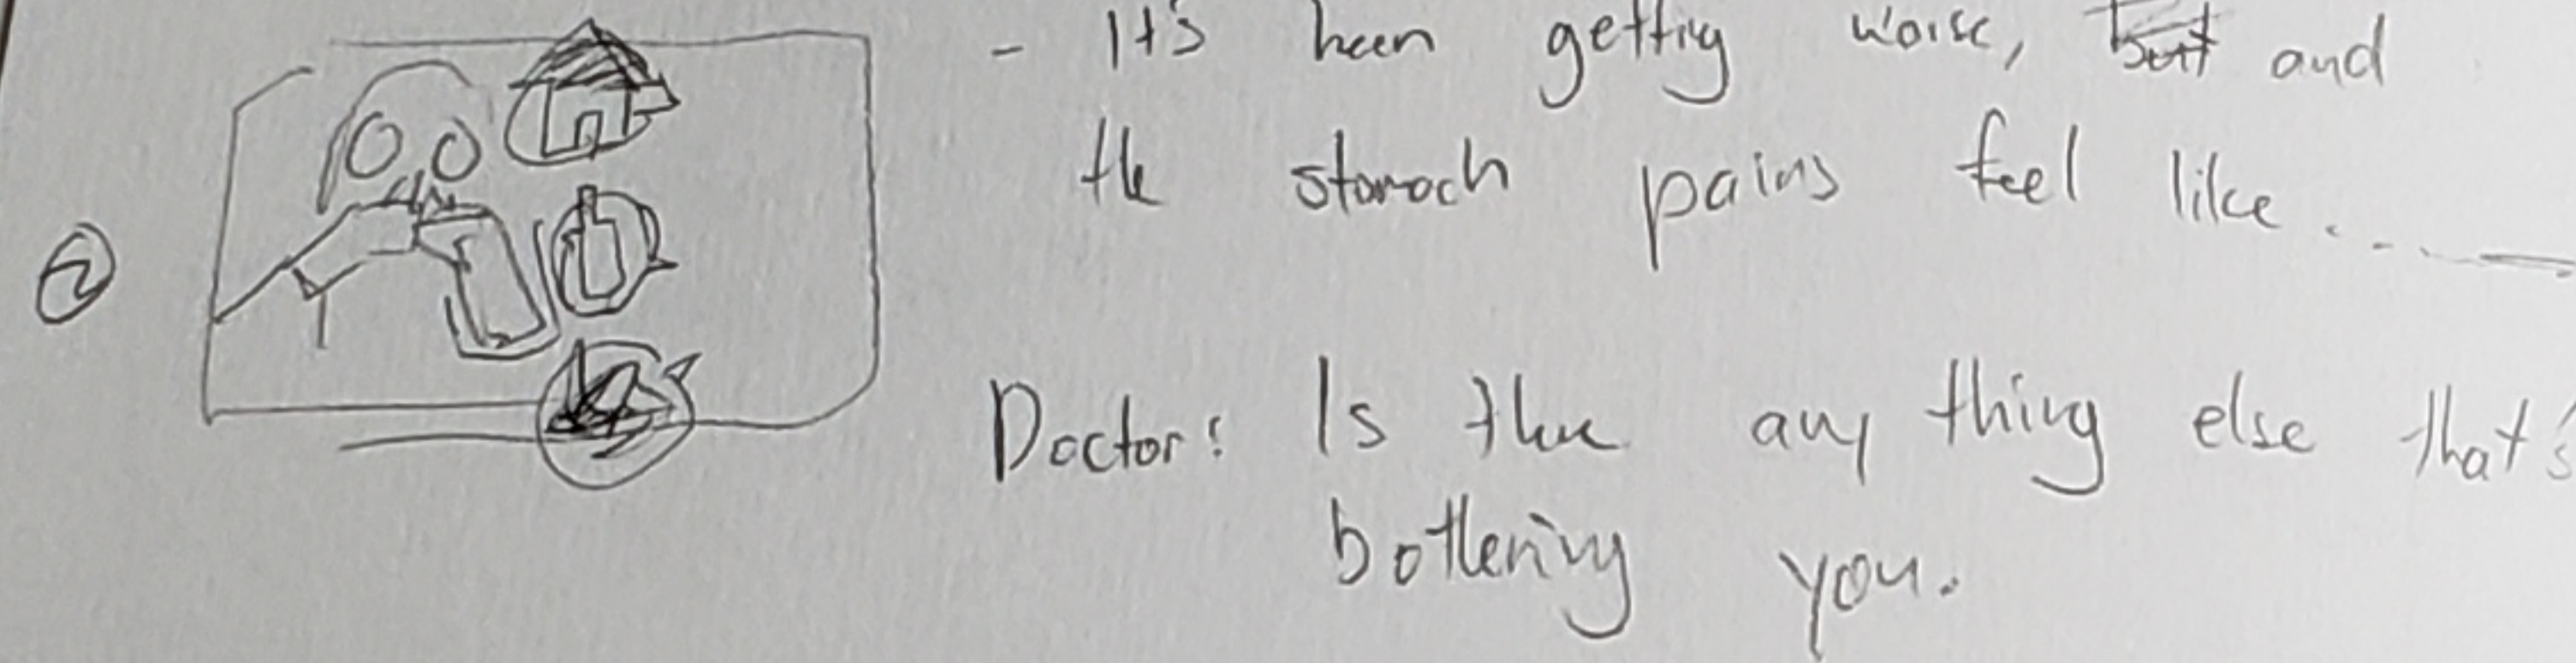 ②
- It's been getting worse, but and
the stomach pains feel like...
Doctor: Is there any thing else that's
bothering you.